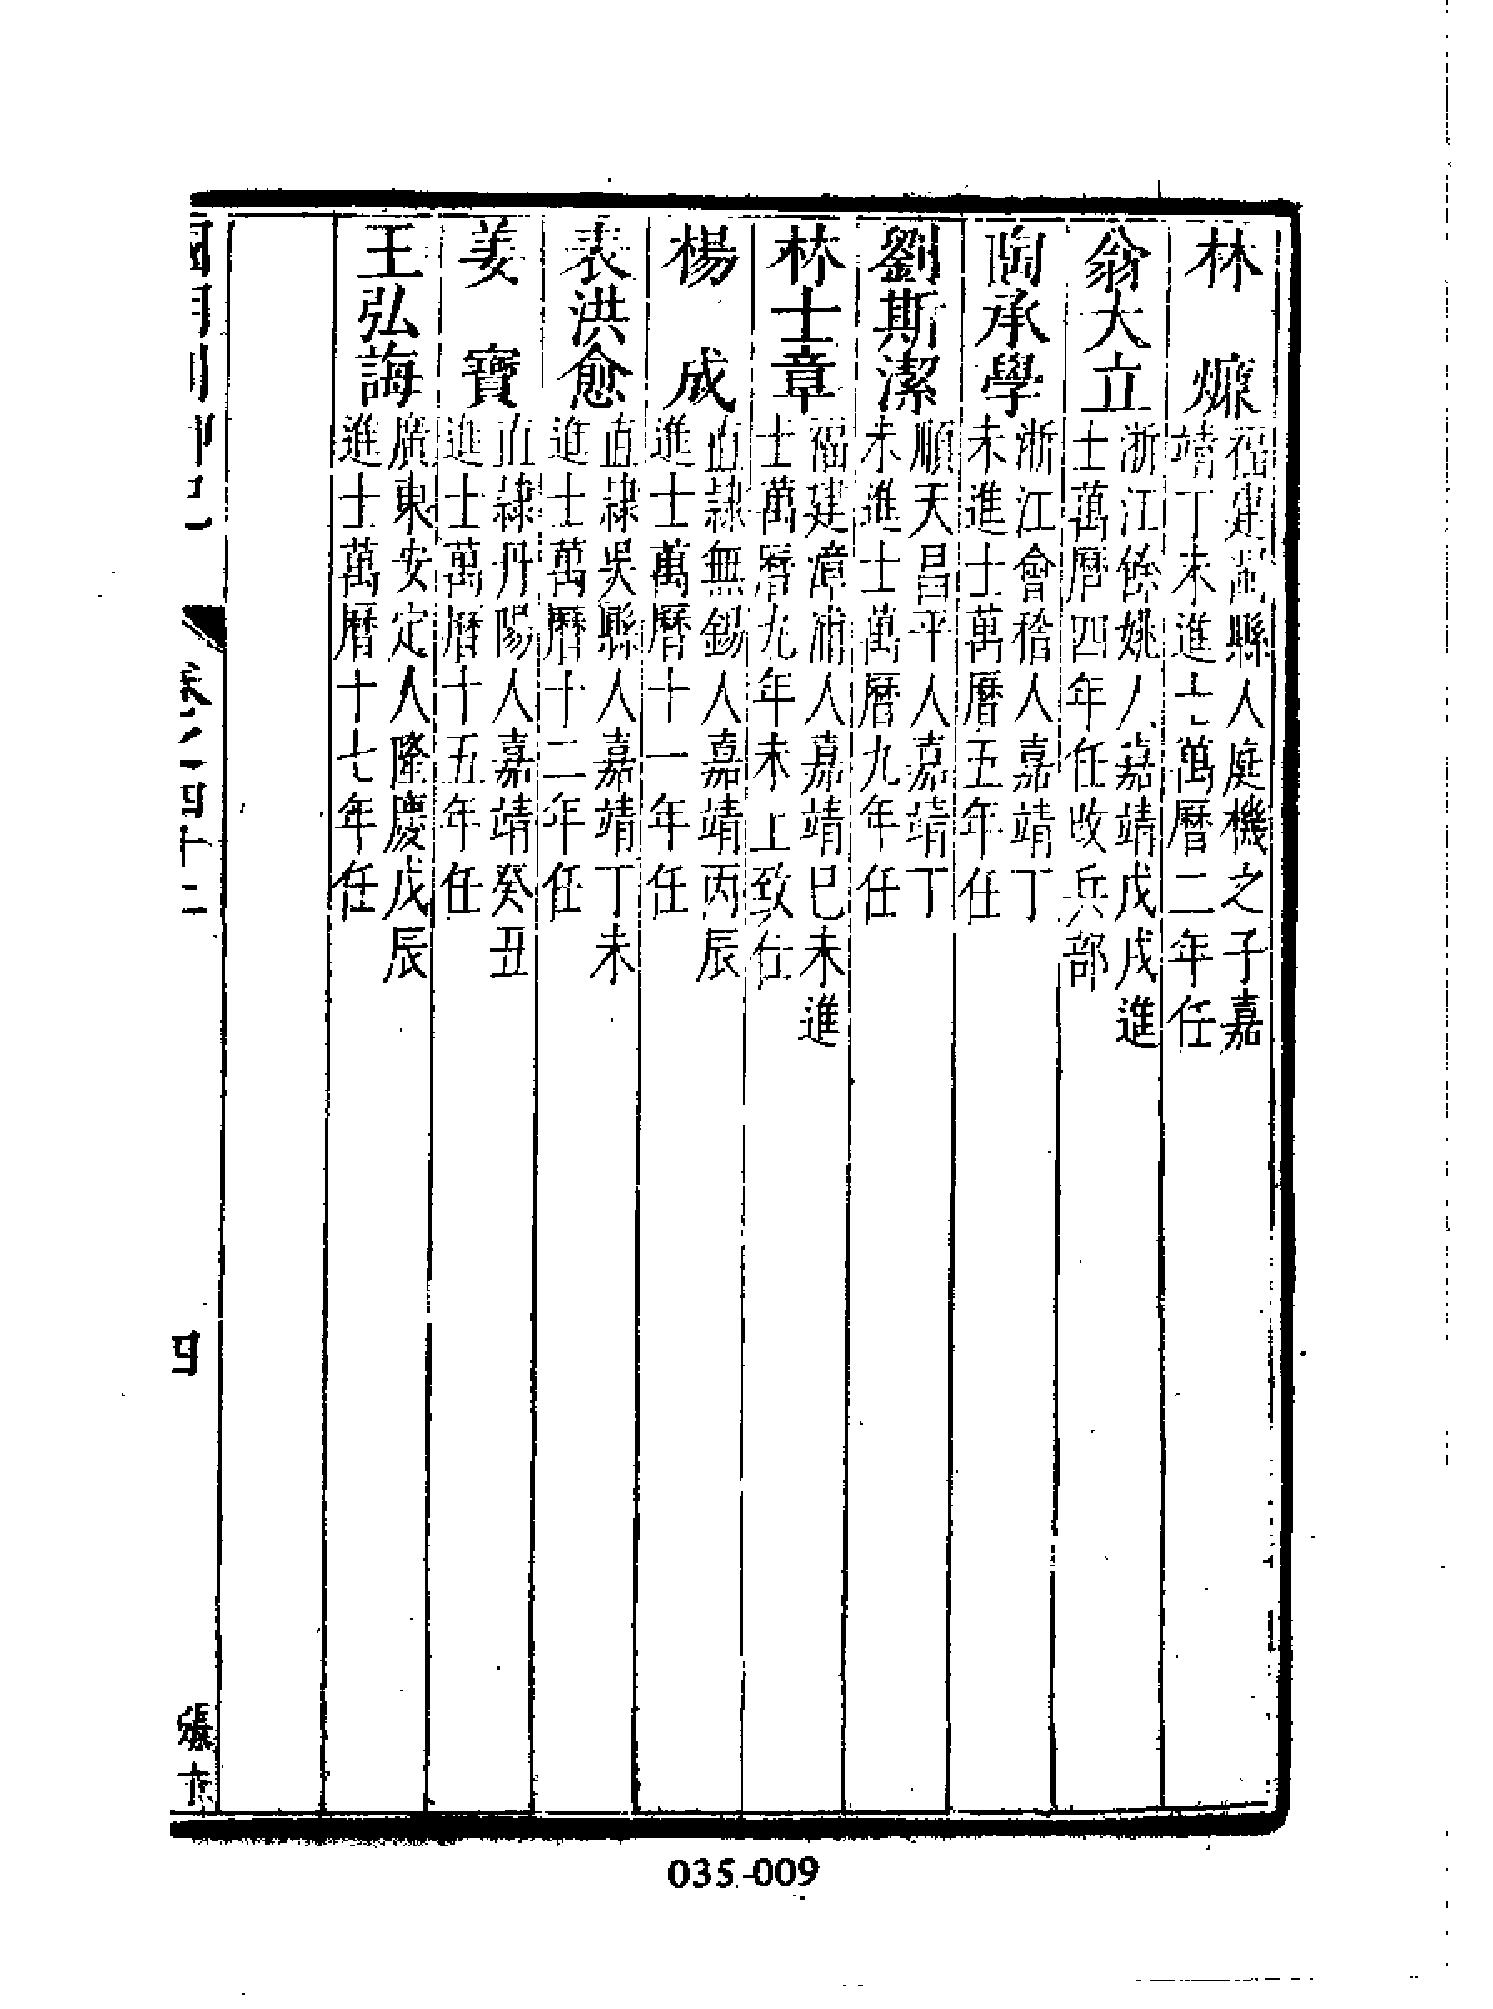 林　燫福建閩縣人庭機之子嘉
靖丁未進士萬曆二年任
翁大立浙江餘姚人嘉靖戊戌進
士萬曆四年任改兵部
陶承學浙江會稽人嘉靖丁
未進士萬曆五年任
劉斯潔順天昌平人嘉靖丁
未進士萬曆九年任
林士章福建漳浦人嘉靖己未進
士萬曆九年未上致仕
楊　成直隸無錫人嘉靖丙辰
進士萬曆十一年任
袁洪愈直隸吳縣人嘉靖丁未
進士萬曆十二年任
姜　寶直隸丹陽人嘉靖癸丑
進士萬曆十五年任
王弘誨廣東安定人隆慶戊辰
進士萬曆十七年任
卷之四十二
四
035-009